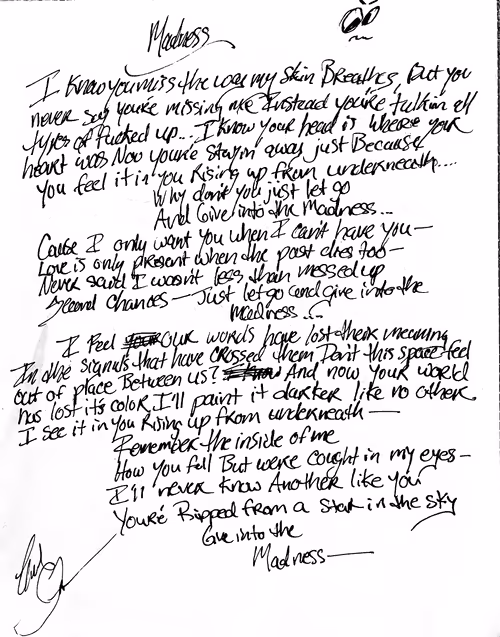 Madness
I Know you miss the way my skin Breathes, But you
never say you're missing me Instead you're talkin all
types of fucked up... I know your head is where your
heart was Now you're stayin away just Because
you feel it in you Rising up from underneath....
Why don't you just let go
And Give into the Madness...
Cause I only want you when I can't have you—
Love is only present when the past dies too—
Never said I wasn't less than messed up
Second Chances— Just let go and give into the
Madness...
I Feel our words have lost their meaning
In the signals that have crossed them Don't this space feel
out of place Between us? And now your world
has lost it's color I'll paint it darker like no other
I see it in you Rising up from underneath—
Remember the inside of me
How you fall But we're caught in my eyes—
I'll never know Another like you
You're Ripped from a star in the sky
Give into the
Madness—